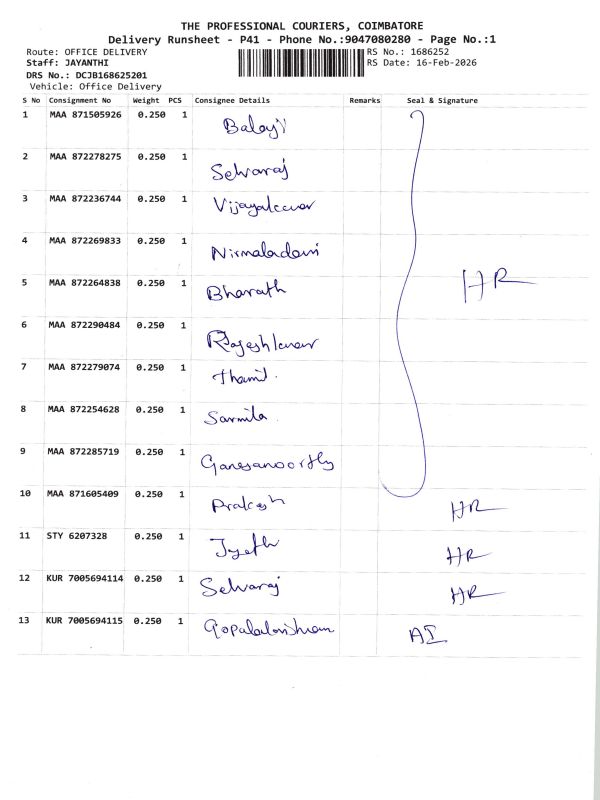 THE PROFESSIONAL COURIERS, COIMBATORE
Delivery Runsheet - P41 - Phone No.:9047080280 - Page No.:1
Route: OFFICE DELIVERY RS No.: 1686252
Staff: JAYANTHI RS Date: 16-Feb-2026
DRS No.: DCJB168625201
Vehicle: Office Delivery
S No Consignment No Weight PCS Consignee Details Remarks Seal & Signature
1 MAA 871505926 0.250 1 Balaji
2 MAA 872278275 0.250 1 Selvaraj
3 MAA 872236744 0.250 1
4 MAA 872269833 0.250 1 Nirmaladevi
5 MAA 872264838 0.250 1 Bharath HR
6 MAA 872290484 0.250 1
7 MAA 872279074 0.250 1 Thamil.
8 MAA 872254628 0.250 1 Sarmila.
9 MAA 872285719 0.250 1
10 MAA 871605409 0.250 1 Prakash HR
11 STY 6207328 0.250 1 HR
12 KUR 7005694114 0.250 1 Selvaraj HR
13 KUR 7005694115 0.250 1